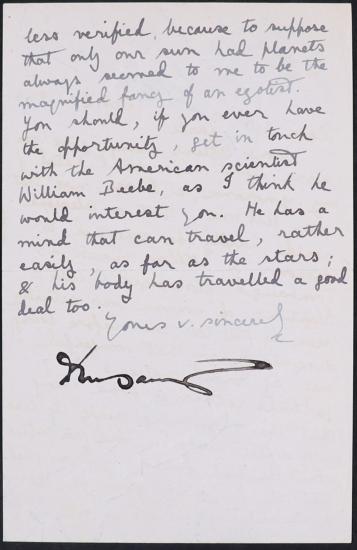 less verified, because to suppose
that only our sun had planets
always seemed to me to be the
magnified fancy of an egotist.
You should, if you ever have
the opportunity, get in touch
with the American scientist
William Beebe, as I think he
would interest you. He has a
mind that can travel, rather
easily, as far as the stars;
& his body has travelled a good
deal too.
Yours v. sincerely
Dunsany